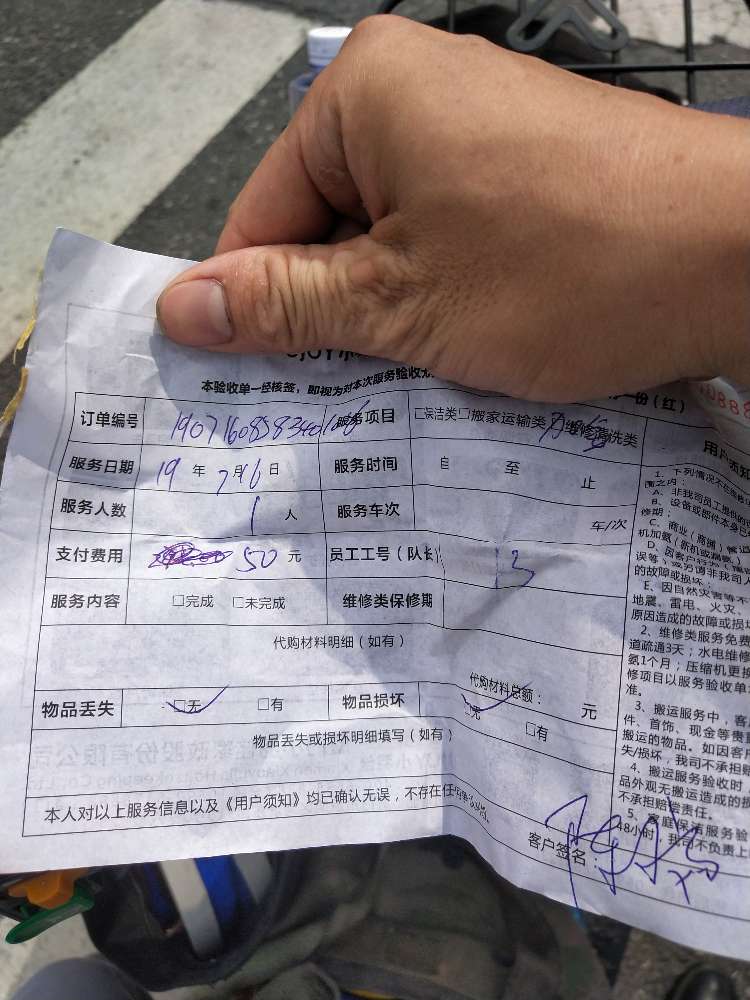 本验收单一经核签，即视为对本次服务验收
份（红）
0888
订单编号 服务项目 □保洁类□搬家运输类 维修清洗类
服务日期 19 年 7月16日 服务时间 自 至 止
服务人数 1 人 服务车次 车/次
支付费用 50 元 员工工号（队长） 13
服务内容 □完成 □未完成 维修类保修期
代购材料明细（如有）
代购材料总额： 元
物品丢失 □无 □有 物品损坏 □无 □有
物品丢失或损坏明细填写（如有）
本人对以上服务信息以及《用户须知》均已确认无误，不存在任
客户签名：
用户须知
1、下列情况不在
围之内：
A、非我司员工提供的
B、设备或部件本身已
修期；
C、商业（商铺）管道
机加氨（新机或漏氨）
D、因客户行为
误等）或另请非我司人
的故障或损坏；
E、因自然灾害等不
地震、雷电、火灾、
原因造成的故障或损坏
2、维修类服务免费
道疏通3天；水电维修
氨1个月；压缩机更换
修项目以服务验收单
准。
3、搬运服务中，客
件、首饰、现金等贵重
搬运的物品。如因客户
失/损坏，我司不承担赔
4、搬运服务验收时
品外观无搬运造成的损
不承担赔偿责任。
5、家庭保洁服务验
48小时，我司不负责上